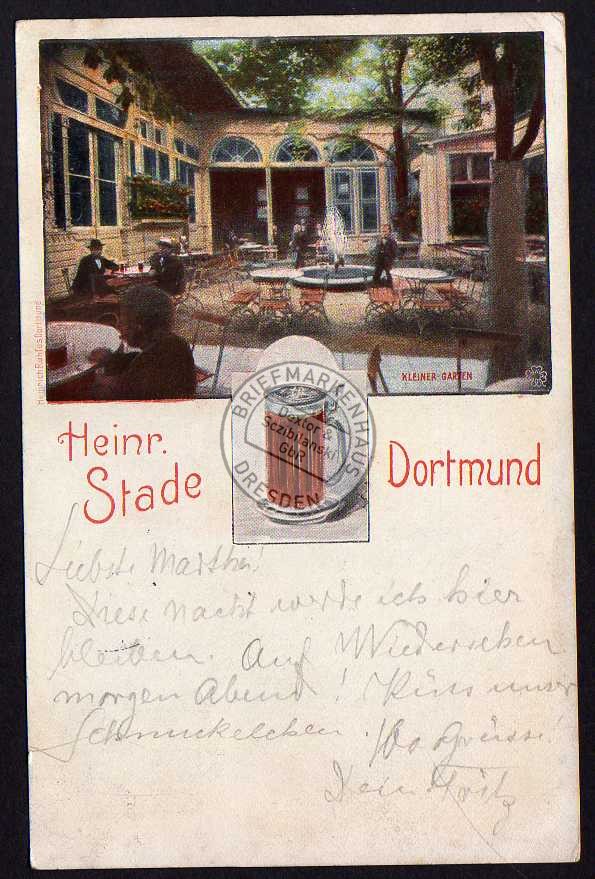 Heinrich Bahlus Dortmund
KLEINER-GARTEN
BRIEFMARKENHAUS
Dextor &
Sczibilanski
GbR
DRESDEN
Heinr.
Stade
Dortmund
Liebste Marthe!
Diese Nacht werde ich hier
bleiben. Auf Wiedersehen
morgen Abend! Küss unser
Schmuckelchen. 100 Grüsse!
Dein Fritz